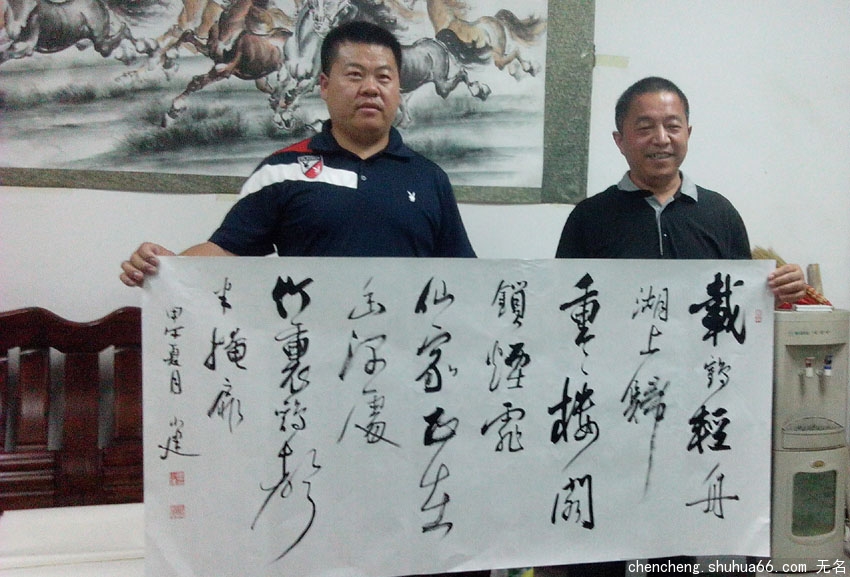 載鶴輕舟
湖上歸
重々樓閣
鎖煙霏
仙家正在
幽深處
竹裏鷄聲
半掩扉
甲午夏月 小建
chencheng.shuhua66.com 无名